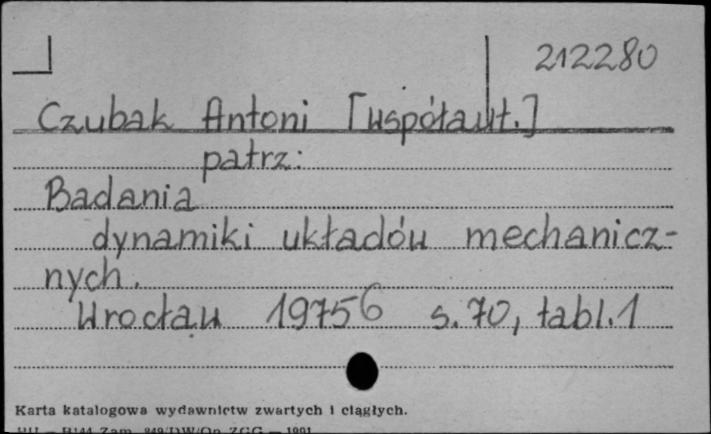 212280
Czubak Antoni [współaut.]
patrz:
Badania
dynamiki układów mechanicz-
nych.
Wrocław 1975 s. 70, tabl. 1
Karta katalogowa wydawnictw zwartych i ciągłych.
Zam. ZGG — 1991